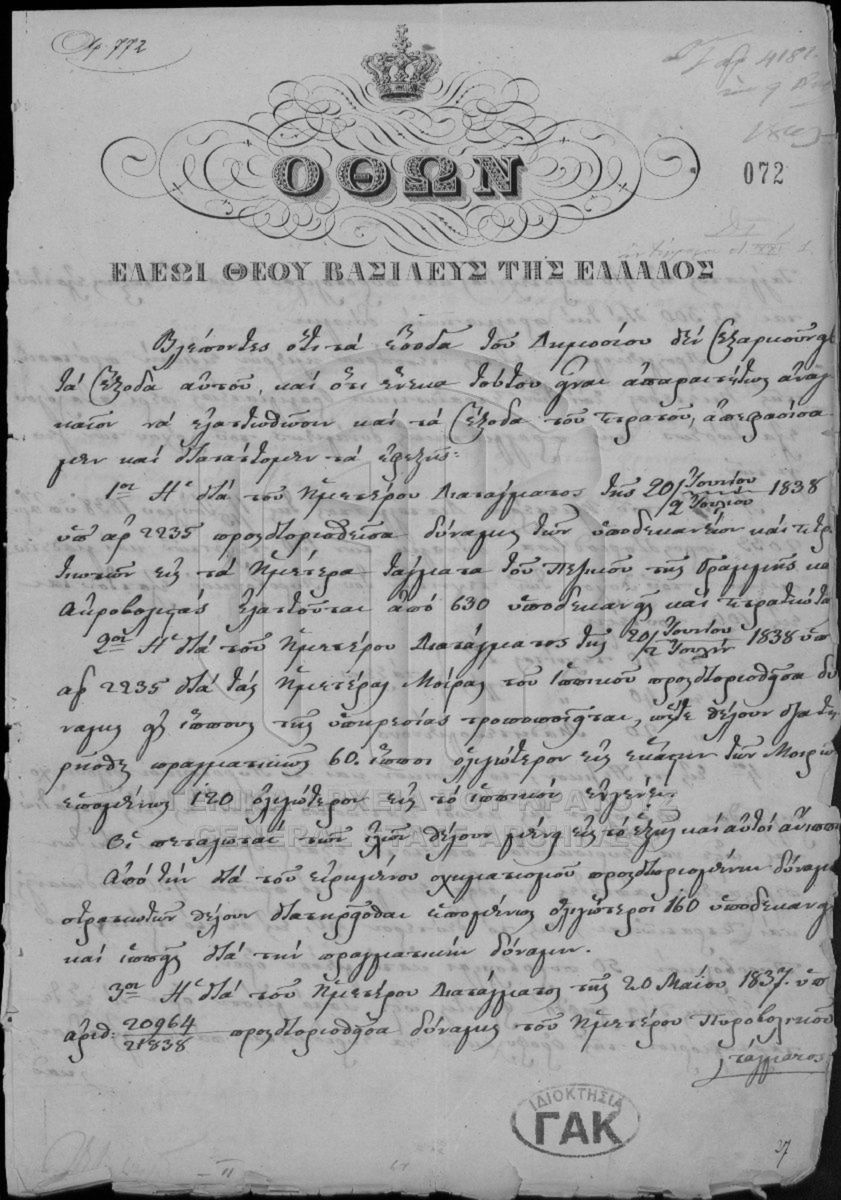 αρ 772
αρ 4181
072
ΟΘΩΝ
ΕΛΕΩΙ ΘΕΟΥ ΒΑΣΙΛΕΥΣ ΤΗΣ ΕΛΛΑΔΟΣ
Βλέποντες ότι τά έσοδα τού Δημοσίου δέν εξαρκούν
τά έξοδα αυτού, καί ότι ένεκα τούτου είναι απαραιτήτως αναγ
καίον να ελαττωθώσιν καί τά έξοδα τού στρατού, απεφασίσα
μεν καί διατάττομεν τα εφεξής:
1ον Η διά τού Ημετέρου Διατάγματος της 20 Ιουνίου/2 Ιουλίου 1838
υπ' αρ 2235 προσδιορισθείσα δύναμις των υποδεκανέων και στρα
τιωτών εις τά Ημέτερα τάγματα του Πεζικού της Γραμμής κα
Ακροβολιστάς ελαττούται από 630 υποδεκανείς καί στρατιώτα
2ον Η διά του Ημετέρου Διατάγματος της 20 Ιουνίου/2 Ιουλίου 1838 υπ
αρ 2235 διά τάς Ημετέρας Μοίρας του ιππικού προσδιορισθείσα δύ
ναμις εις ίππους της υπηρεσίας τροποποιείται, ώστε θέλουν διατη
ρηθεί πραγματικώς 60 ίπποι ολιγώτερον εις εκάστην των Μοιρών
επομένως 120 ολιγώτερον εις το ιππικόν εν γένει.
Οι πεταλωταί των ιλών θέλουν μένει εις το εξής καί αυτοί άνιππο
Από την διά του ειρημένου σχηματισμού προσδιορισμένην δύναμι
στρατιωτών θέλουν διατηρείσθαι επομένως ολιγώτεροι 160 υποδεκανείς
καί ιππείς διά την πραγματικήν δύναμιν.
3ον Η διά του Ημετέρου Διατάγματος της 20 Μαΐου 1837 υπ
αριθ: 20964/21838 προσδιορισθείσα δύναμις του Ημετέρου Πυροβολικού
τάγματος
ΓΕΝΙΚΑ ΑΡΧΕΙΑ ΤΟΥ ΚΡΑΤΟΥΣ
GENERAL STATE ARCHIVES
ΙΔΙΟΚΤΗΣΙΑ
ΓΑΚ
27